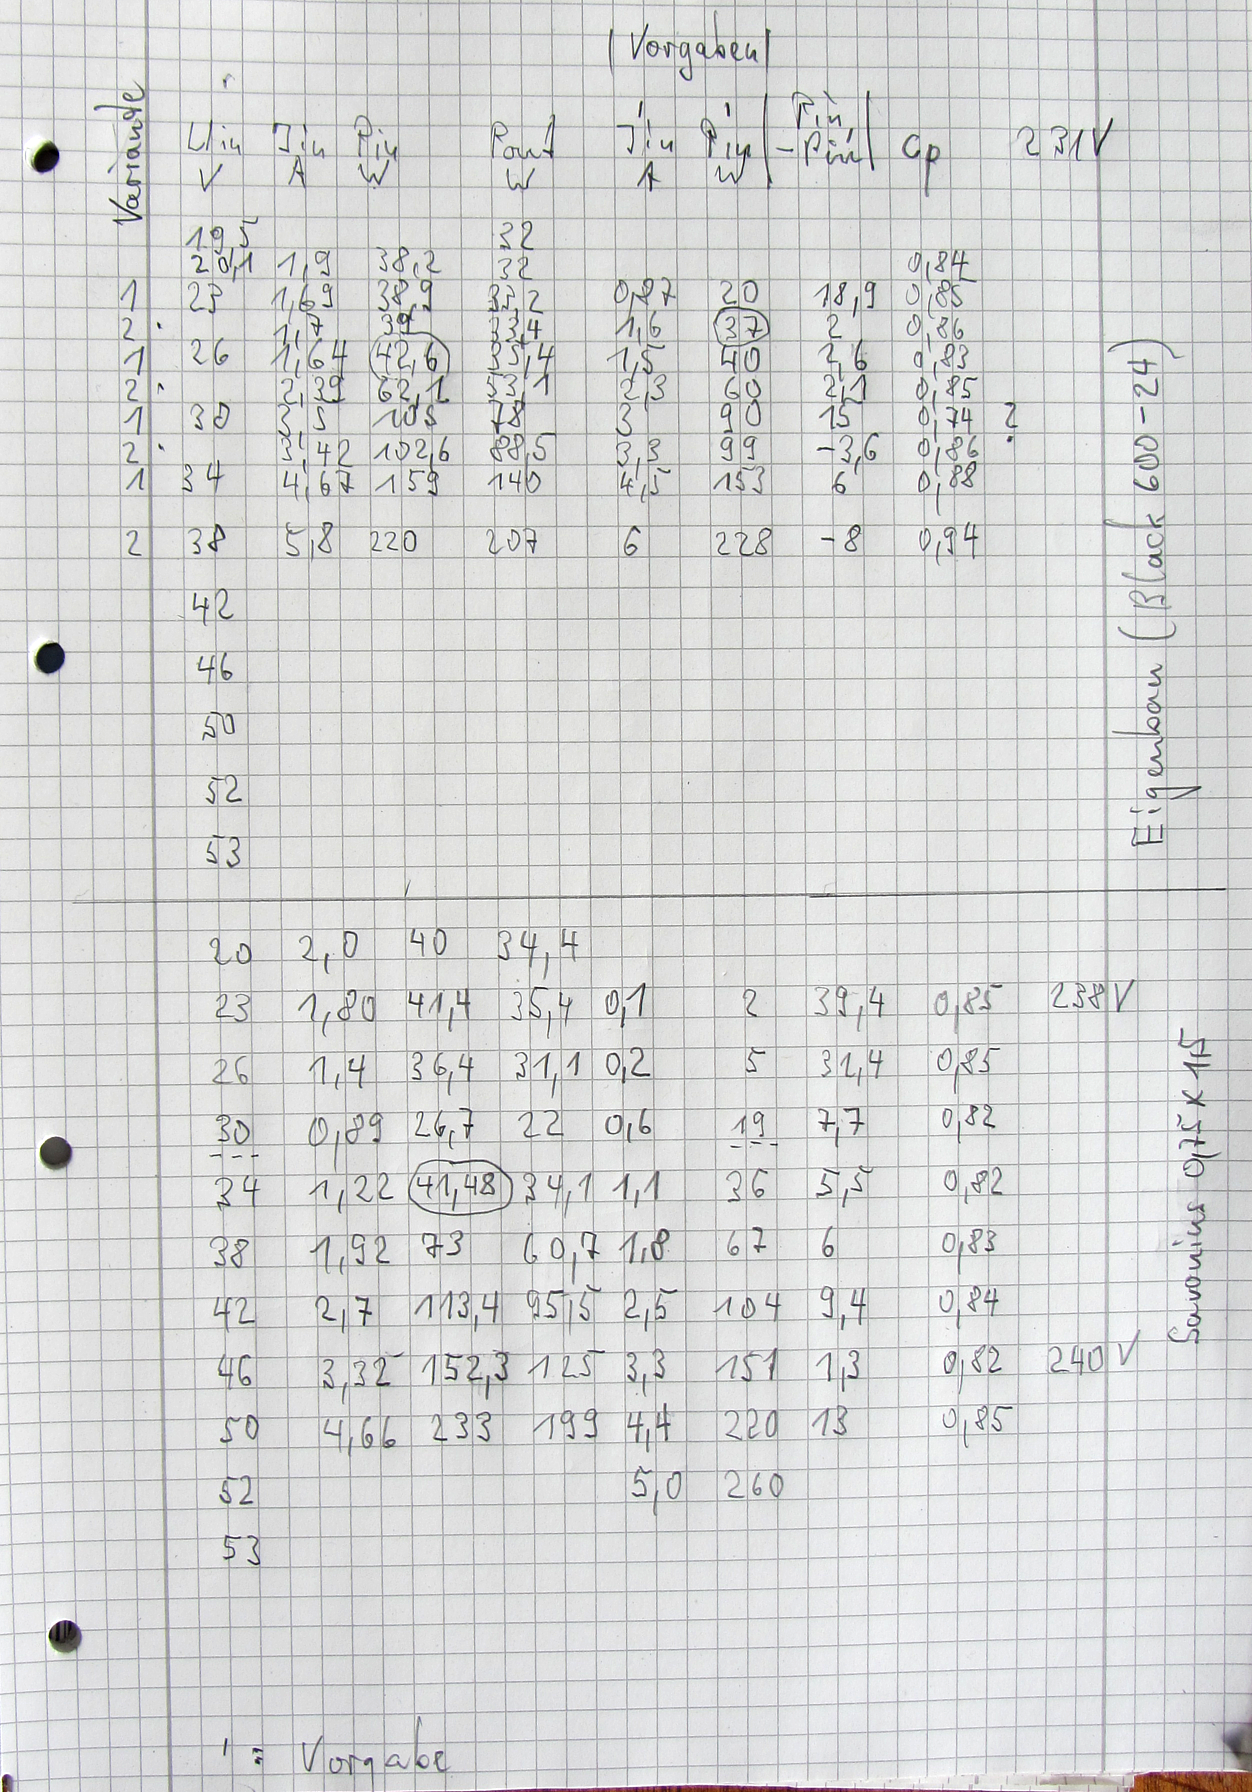 |Vorgaben|
Variande Uin Iin Pin Pout I'in P'in |Pin -P'in| Cp 231V
V A W W A W
19,5 32
20,1 1,9 38,2 32 0,84
1 23 1,69 38,9 33,2 0,87 20 18,9 0,85
2 · 1,7 39 33,4 1,6 37 2 0,86
1 26 1,64 42,6 35,4 1,5 40 2,6 0,83
2 · 2,39 62,1 53,1 2,3 60 2,1 0,85
1 30 3,5 105 78 3 90 15 0,74 ?
2 · 3,42 102,6 88,5 3,3 99 -3,6 0,86
1 34 4,67 159 140 4,5 153 6 0,88
2 38 5,8 220 207 6 228 -8 0,94
42
46
50
52
53
Eigenbau (Black 600-24)
20 2,0 40 34,4
23 1,80 41,4 35,4 0,1 2 39,4 0,85 238V
26 1,4 36,4 31,1 0,2 5 31,4 0,85
30 0,89 26,7 22 0,6 19 7,7 0,82
34 1,22 41,48 34,1 1,1 36 5,5 0,82
38 1,92 73 60,7 1,8 67 6 0,83
42 2,7 113,4 95,5 2,5 104 9,4 0,84
46 3,32 152,3 125 3,3 151 1,3 0,82 240V
50 4,66 233 199 4,4 220 13 0,85
52 5,0 260
53
Savonius 0,75 x 1,5
' = Vorgabe